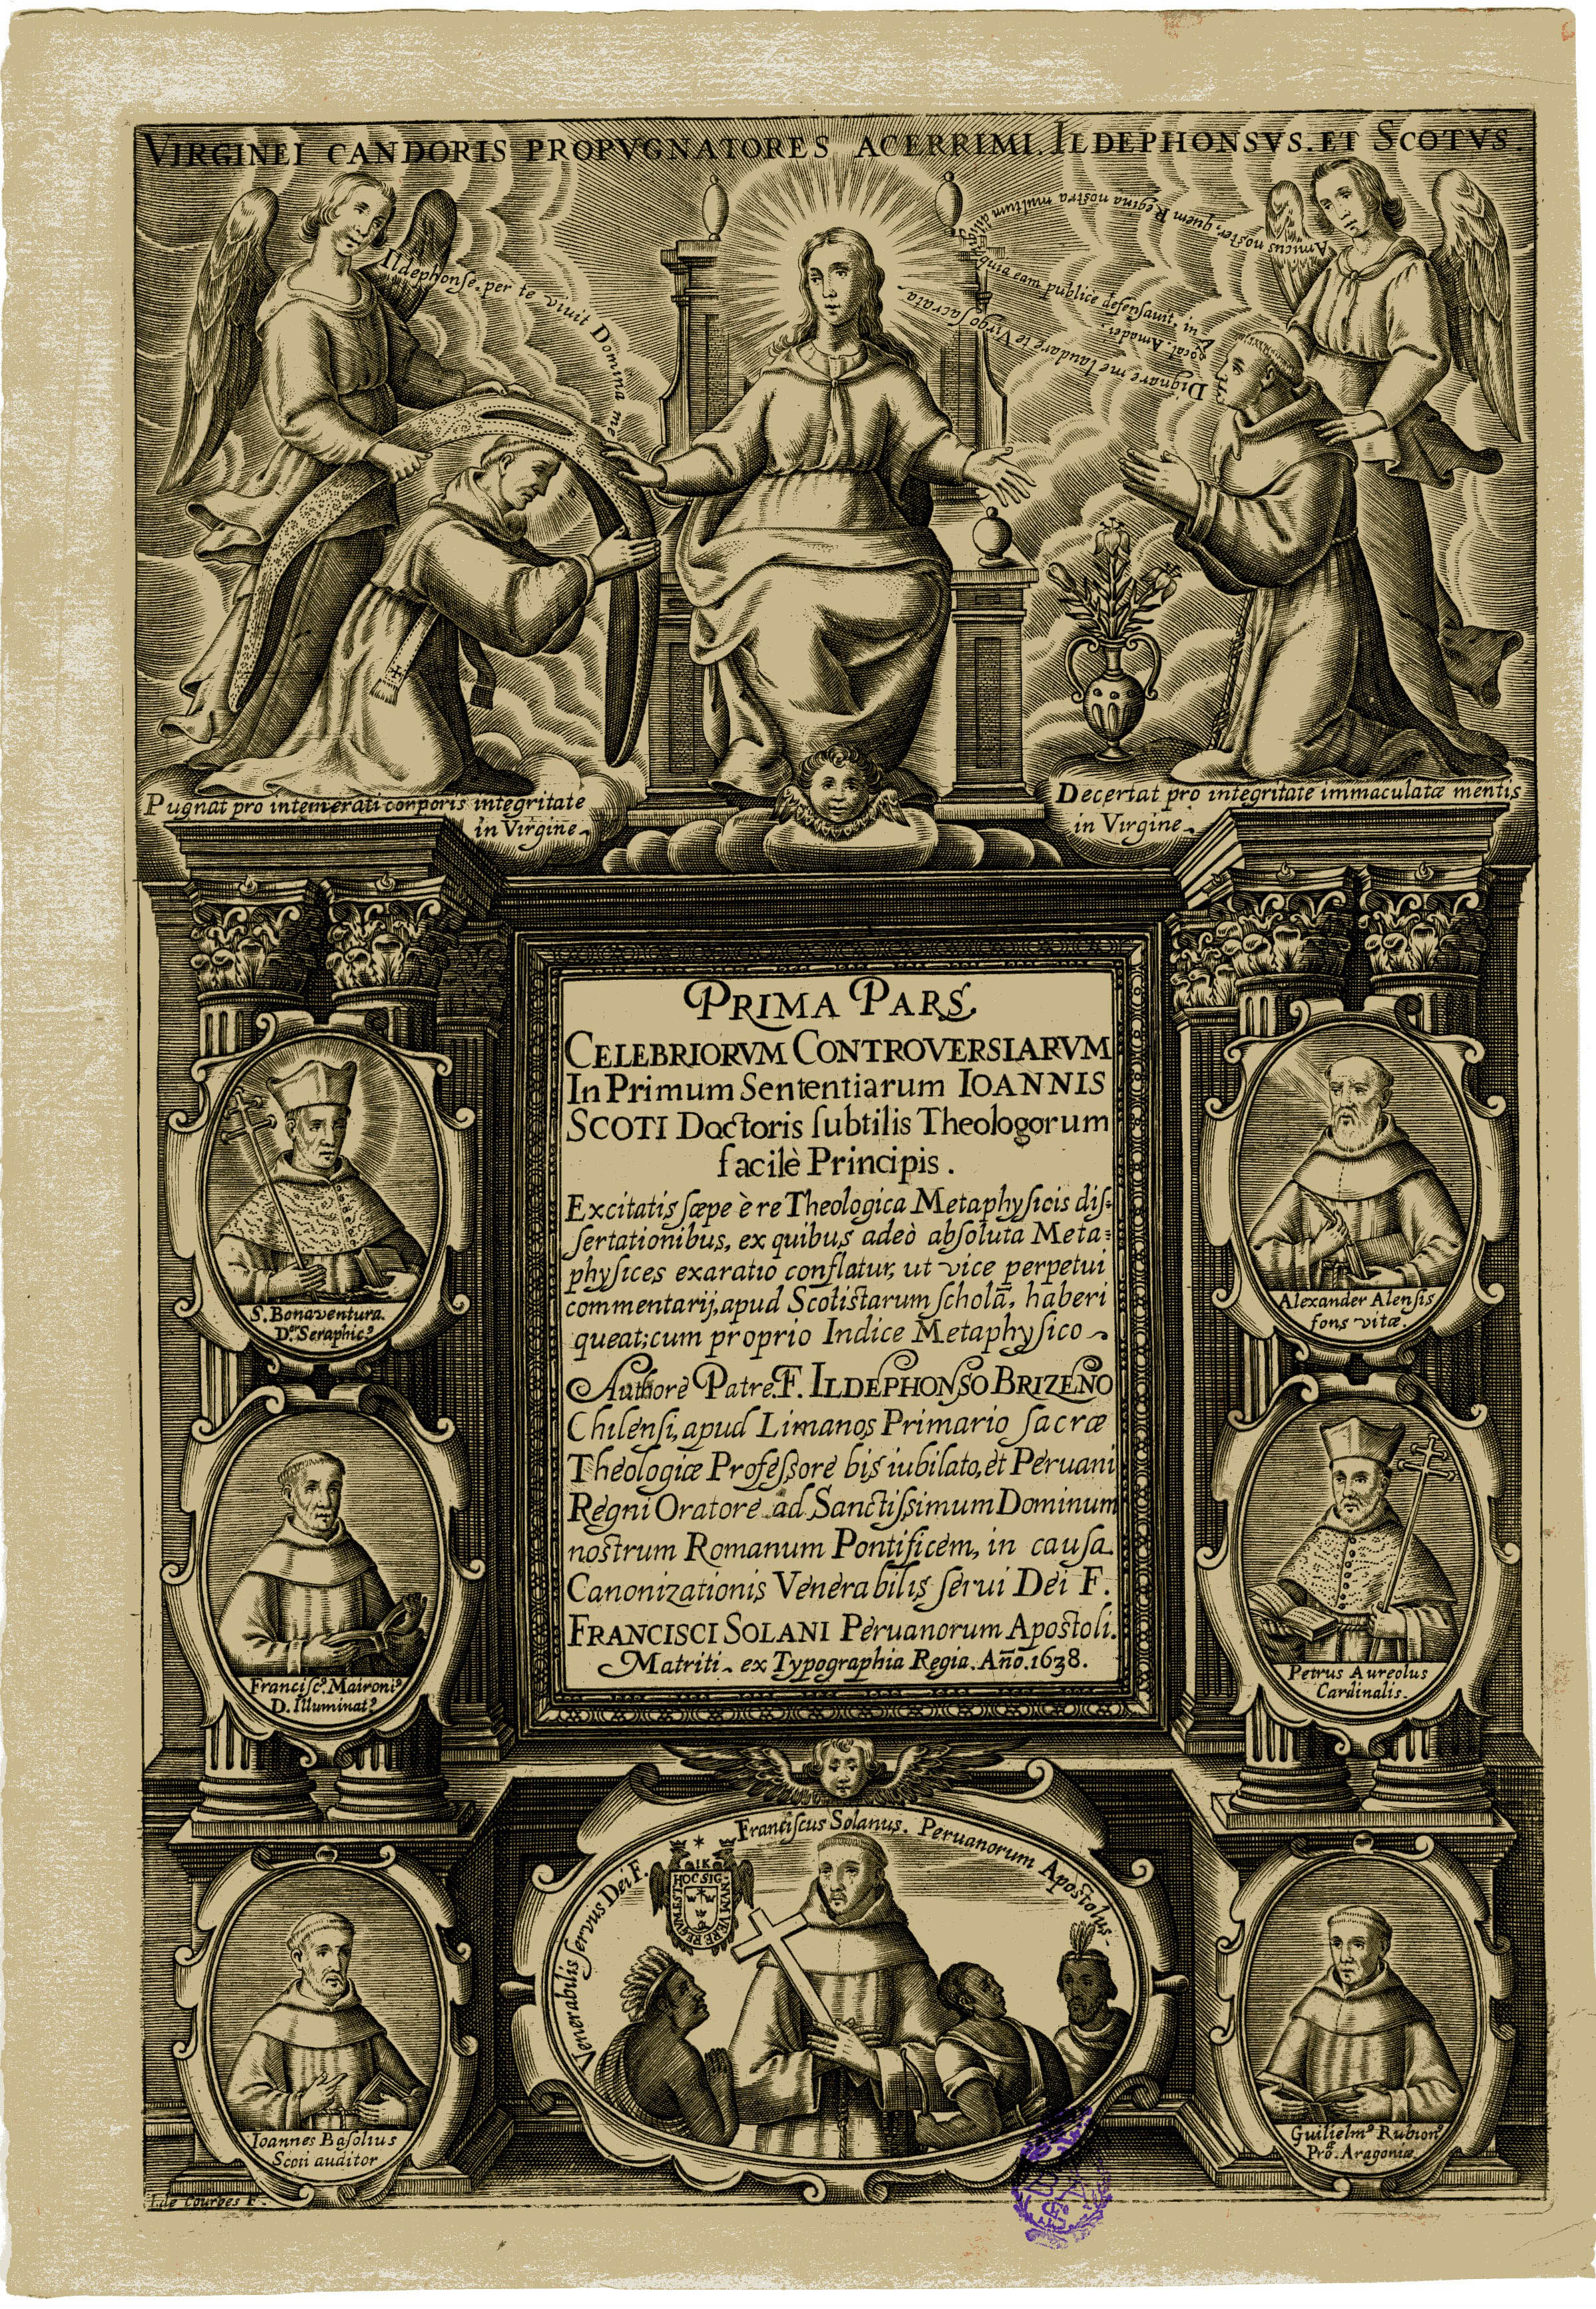 VIRGINEI CANDORIS PROPVGNATORES ACERRIMI. ILDEPHONSVS. ET SCOTVS
Ildephonse. per te viuit Domina mea
Amicus noster, quem Regina nostra multum
quia eam publicè defensauit, in
Dignare me laudare te Virgo sacrata
Pugnat pro intemerati corporis integritate
in Virgine.
Decertat pro integritate immaculatæ mentis
in Virgine.
PRIMA PARS.
CELEBRIORVM CONTROVERSIARVM
In Primum Sententiarum IOANNIS
SCOTI Doctoris subtilis Theologorum
facilè Principis.
Excitatis sæpe è re Theologica Metaphysicis dis-
sertationibus, ex quibus adeò absoluta Meta=
physices exaratio conflatur, ut vice perpetui
commentarij, apud Scotistarum scholã, haberi
queat: cum proprio Indice Metaphysico
Authore Patre. F. ILDEPHONSO BRIZENO
Chilensi, apud Limanos Primario sacræ
Theologiæ Professore bis iubilato, et Peruani
Regni Oratore ad Sanctissimum Dominum
nostrum Romanum Pontificem, in causa
Canonizationis Venerabilis serui Dei F.
FRANCISCI SOLANI Peruanorum Apostoli.
Matriti. ex Typographia Regia. Año. 1638.
S. Bonaventura.
D.or Seraphic.9
Alexander Alensis
fons vitæ.
Francisc9. Maironi9
D. Illuminat9
Petrus Aureolus
Cardinalis.
Venerabilis servus Dei F. Franciscus Solanus. Peruanorum Apostolus.
IK
HOC SIGNVM VERE REGVM EST
Ioannes Basolius
Scoti auditor
Guilielm9 Rubion9
Prõ. Aragoniæ
I. de Courbes F.